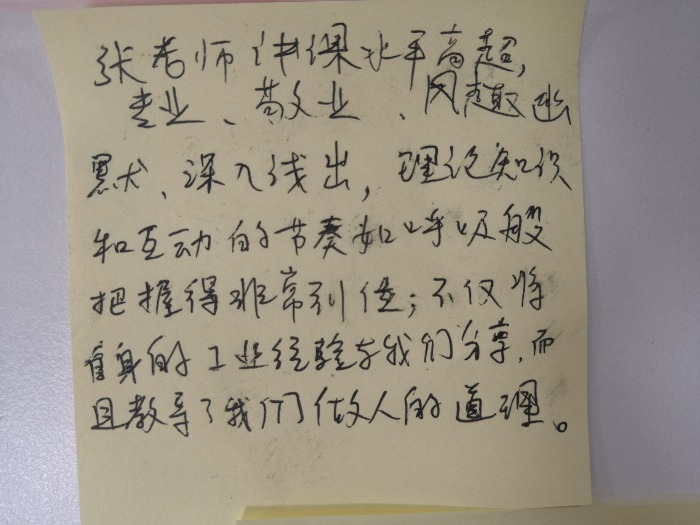 张老师讲课水平高超,
专业、敬业、风趣幽
默、深入浅出,理论知识
和互动的节奏如呼吸般
把握得非常到位;不仅将
自身的工业经验与我们分享,而
且教导了我们做人的道理。